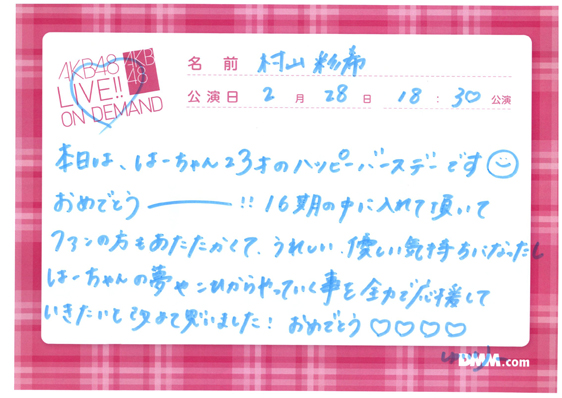 AKB48
LIVE!!
ON DEMAND
AKB
48
名 前 村山彩希
公演日 2 月 28 日 18 : 30 公演
本日は、はーちゃん23才のハッピーバースデーです
おめでとうー!! 16期の中に入れて頂いて
ファンの方もあたたかくて、うれしい、優しい気持ちになったし
はーちゃんの夢やこれからやっていく事を全力で応援して
いきたいと改めて思いました! おめでとう♡♡♡♡
DMM.com